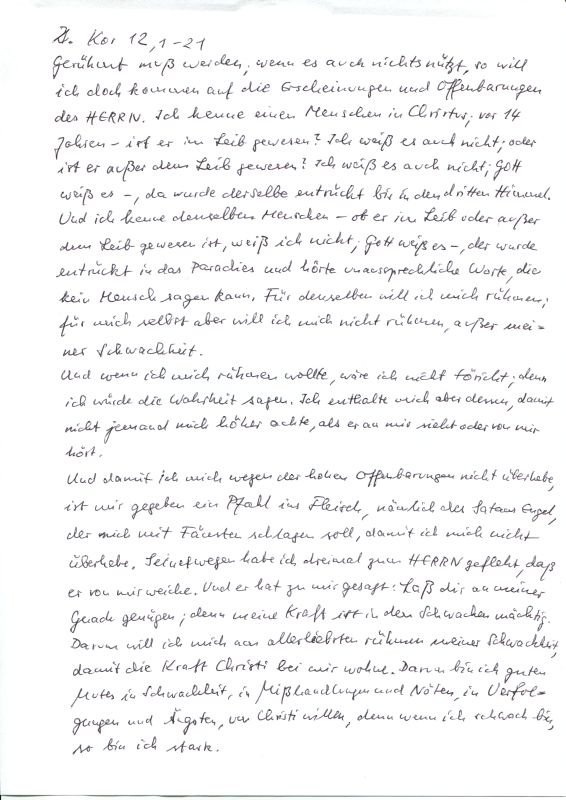 2. Kor 12,1-21
Gerühmt muß werden; wenn es auch nichts nützt, so will
ich doch kommen auf die Erscheinungen und Offenbarungen
des HERRN. Ich kenne einen Menschen in Christus; vor 14
Jahren – ist er im Leib gewesen? Ich weiß es auch nicht; oder
ist er außer dem Leib gewesen? Ich weiß es auch nicht; Gott
weiß es –, da wurde derselbe entrückt bis in den dritten Himmel.
Und ich kenne denselben Menschen – ob er im Leib oder außer
dem Leib gewesen ist, weiß ich nicht; Gott weiß es –, der wurde
entrückt in das Paradies und hörte unaussprechliche Worte, die
kein Mensch sagen kann. Für denselben will ich mich rühmen;
für mich selbst aber will ich mich nicht rühmen, außer mei-
ner Schwachheit.
Und wenn ich mich rühmen wollte, wäre ich nicht töricht; denn
ich würde die Wahrheit sagen. Ich enthalte mich aber dessen, damit
nicht jemand mich höher achte, als er an mir sieht oder von mir
hört.
Und damit ich mich wegen der hohen Offenbarungen nicht überhebe,
ist mir gegeben ein Pfahl ins Fleisch, nämlich des Satans Engel,
der mich mit Fäusten schlagen soll, damit ich mich nicht
überhebe. Seinetwegen habe ich dreimal zum HERRN gefleht, daß
er von mir weiche. Und er hat zu mir gesagt: Laß dir an meiner
Gnade genügen; denn meine Kraft ist in den Schwachen mächtig.
Darum will ich mich am allerliebsten rühmen meiner Schwachheit,
damit die Kraft Christi bei mir wohne. Darum bin ich guten
Mutes in Schwachheit, in Mißhandlungen und Nöten, in Verfol-
gungen und Ängsten, von Christi willen, denn wenn ich schwach bin,
so bin ich stark.